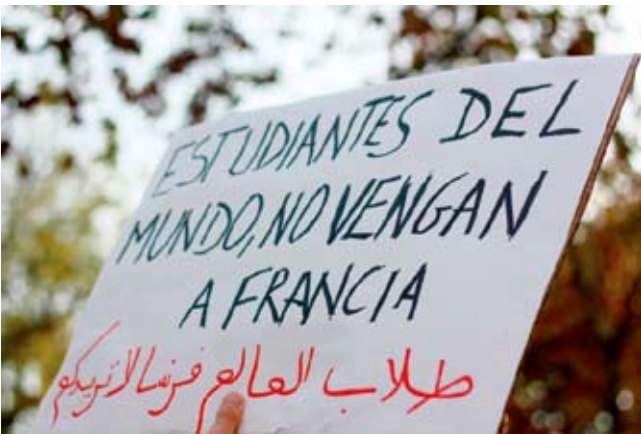 ESTUDIANTES DEL
MUNDO, NO VENGAN
A FRANCIA
طلاب العالم فرنسا لا تريدكم